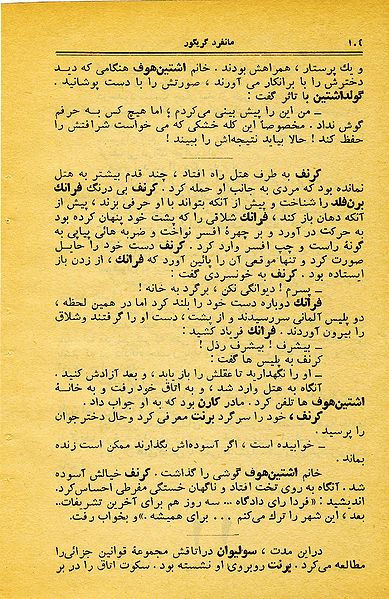 ۱۰٤
مانفرد گریگور
و یك پرستار ، همراهش بودند . خانم اشتین‌هوف هنگامی که دید
دخترش را با برانکار می آورند ، صورتش را با دست پوشانید .
گولداشتین با تاثر گفت :
ـ من این را پیش بینی می‌کردم ؛ اما هیچ کس به حرفم
گوش نداد . مخصوصاً این کله خشکی که می خواست شرافتش را
حفظ کند ! حالا بیاید نتیجه‌اش را ببیند !
کرنف به طرف هتل راه افتاد ، چند قدم بیشتر به هتل
نمانده بود که مردی به جانب او حمله کرد . کرنف بی درنگ فرانك
برن‌فلد را شناخت و پیش از آنکه بتواند با او حرفی بزند ، پیش از
آنکه دهان باز کند ، فرانك شلاقی را که پشت خود پنهان کرده بود
به حرکت در آورد و بر چهرهٔ افسر نواخت و ضربه هائی پیاپی به
گونهٔ راست و چپ افسر وارد کرد . کرنف دست خود را حایل
صورت کرد و تنها موقعی آن را پائین آورد که فرانك ، از زدن باز
ایستاده بود . کرنف به خونسردی گفت :
ـ پسرم ! دیوانگی نکن ، برگرد به خانه !
فرانك دوباره دست خود را بلند کرد اما در همین لحظه ،
دو پلیس آلمانی سررسیدند و از پشت ، دست او را گرفتند وشلاق
را بیرون آوردند . فرانك فریاد کشید :
ـ بیشرف ! بیشرف رذل !
کرنف به پلیس ها گفت :
ـ او را نگهدارید تا عقلش را باز یابد ، و بعد آزادش کنید .
آنگاه به هتل وارد شد ، و به اتاق خود رفت و به خانهٔ
اشتین‌هوف ها تلفن کرد . مادر کارن بود که به او جواب داد .
کرنف ، خود را سرگرد برنت معرفی کرد وحال دخترجوان
را پرسید .
ـ خوابیده است ، اگر آسوده‌اش بگذارند ممکن است زنده
بماند .
خانم اشتین‌هوف گوشی را گذاشت . کرنف خیالش آسوده
شد . آنگاه به روی تخت افتاد و ناگهان خستگی مفرطی احساس‌کرد.
اندیشید : « فردا رای دادگاه ... سه روز هم برای آخرین تشریفات..
بعد ، این شهر را ترك می‌کنم ... برای همیشه .» و بخواب رفت.
دراین مدت ، سولیوان دراتاقش مجموعهٔ قوانین جزائی‌را
مطالعه می‌کرد. برنت روبروی او نشسته بود . سکوت اتاق را در بر